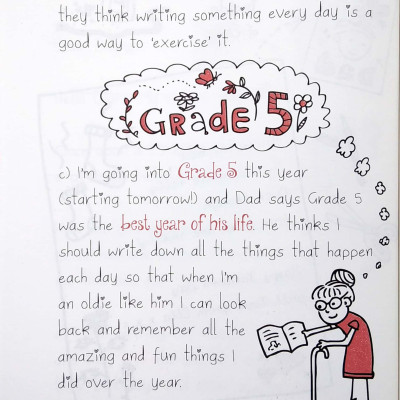 they think writing something every day is a
good way to 'exercise' it.
GRadE 5
c) I'm going into Grade 5 this year
(starting tomorrow!) and Dad says Grade 5
was the best year of his life. He thinks I
should write down all the things that happen
each day so that when I'm
an oldie like him I can look
back and remember all the
amazing and fun things I
did over the year.